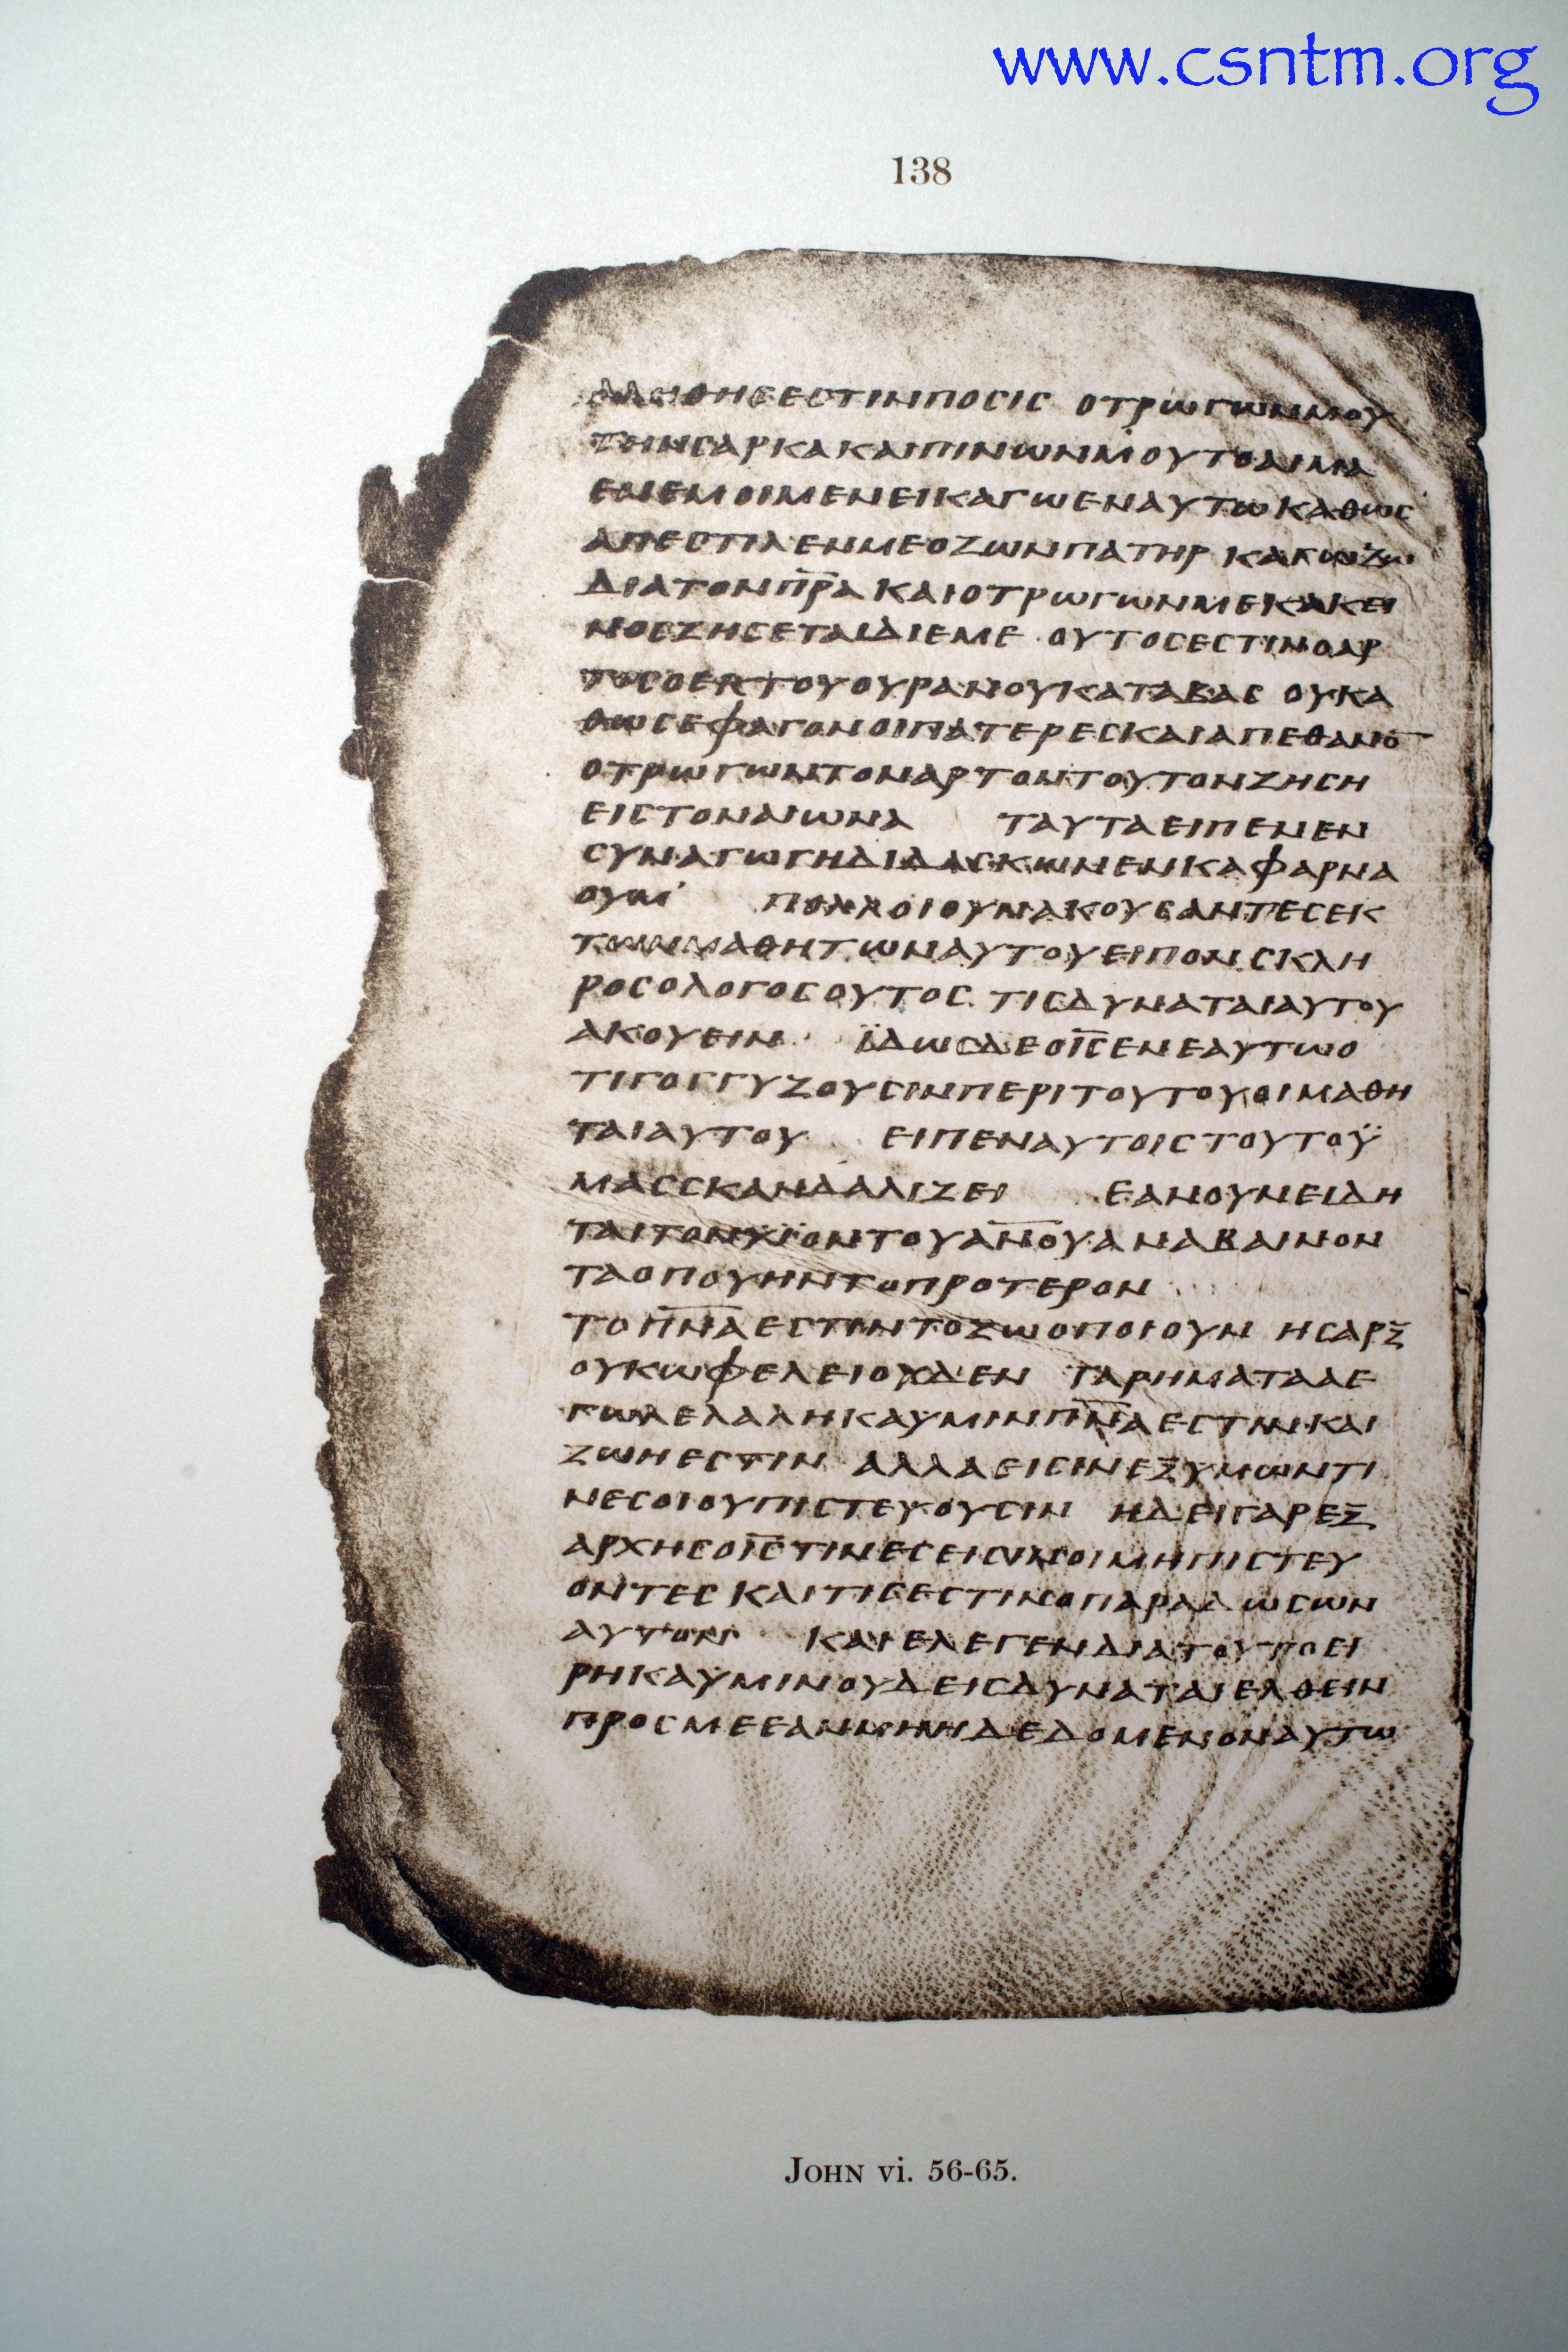 www.csntm.org
138
ΑΛΗΘΗϹΕϹΤΙΝΠΟϹΙϹ ΟΤΡωΓωΝΜΟΥ
ΤΗΝϹΑΡΚΑΚΑΙΠΙΝωΝΜΟΥΤΟΑΙΜΑ
ΕΝΕΜΟΙΜΕΝΕΙΚΑΓωΕΝΑΥΤωΚΑΘωϹ
ΑΠΕϹΤΙΛΕΝΜΕΟΖωΝΠΑΤΗΡ ΚΑΓωΖω
ΔΙΑΤΟΝΠ̅Ρ̅Α ΚΑΙΟΤΡωΓωΝΜΕΚΑΚΕΙ
ΝΟϹΖΗϹΕΤΑΙΔΙΕΜΕ ΟΥΤΟϹΕϹΤΙΝΟΑΡ
ΤΟϹΟΕΚΤΟΥΟΥΡΑΝΟΥΚΑΤΑΒΑϹ ΟΥΚΑ
ΘωϹΕΦΑΓΟΝΟΙΠΑΤΕΡΕϹΚΑΙΑΠΕΘΑΝΟ̅
ΟΤΡωΓωΝΤΟΝΑΡΤΟΝΤΟΥΤΟΝΖΗϹΗ
ΕΙϹΤΟΝΑΙωΝΑ ΤΑΥΤΑΕΙΠΕΝΕΝ
ϹΥΝΑΓωΓΗΔΙΔΑϹΚωΝΕΝΚΑΦΑΡΝΑ
ΟΥΜ ΠΟΛΛΟΙΟΥΝΑΚΟΥϹΑΝΤΕϹΕΚ
ΤωΝΜΑΘΗΤωΝΑΥΤΟΥΕΙΠΟΝϹΚΛΗ
ΡΟϹΟΛΟΓΟϹΟΥΤΟϹ ΤΙϹΔΥΝΑΤΑΙΑΥΤΟΥ
ΑΚΟΥΕΙΝ ΪΔωϹΔΕΟΙ̅Ϲ̅ΕΝΕΑΥΤωΟ
ΤΙΓΟΓΓΥΖΟΥϹΙΝΠΕΡΙΤΟΥΤΟΥΟΙΜΑΘΗ
ΤΑΙΑΥΤΟΥ ΕΙΠΕΝΑΥΤΟΙϹΤΟΥΤΟΫ
ΜΑϹϹΚΑΝΔΑΛΙΖΕΙ ΕΑΝΟΥΝΕΙΔΗ
ΤΑΙΤΟΝΥΙΟΝΤΟΥΑ̅Ν̅Ο̅Υ̅ΑΝΑΒΑΙΝΟΝ
ΤΑΟΠΟΥΗΝΤΟΠΡΟΤΕΡΟΝ
ΤΟΠ̅Ν̅Α̅ΕϹΤΙΝΤΟΖωΟΠΟΙΟΥΝ ΗϹΑΡΞ
ΟΥΚωΦΕΛΕΙΟΥΔΕΝ ΤΑΡΗΜΑΤΑΑΕ
ΓωΛΕΛΑΛΗΚΑΥΜΙΝΠ̅Ν̅Α̅ΕϹΤΙΝΚΑΙ
ΖωΗΕϹΤΙΝ ΑΛΛΑΕΙϹΙΝΕΞΥΜωΝΤΙ
ΝΕϹΟΙΟΥΠΙϹΤΕΥΟΥϹΙΝ ΗΔΕΙΓΑΡΕΞ
ΑΡΧΗϹΟΙ̅Ϲ̅ΤΙΝΕϹΕΙϹΙΝΟΙΜΗΠΙϹΤΕΥ
ΟΝΤΕϹΚΑΙΤΙϹΕϹΤΙΝΟΠΑΡΑΔωϹωΝ
ΑΥΤΟΝ ΚΑΙΕΛΕΓΕΝΔΙΑΤΟΥΤΟΕΙ
ΡΗΚΑΥΜΙΝΟΥΔΕΙϹΔΥΝΑΤΑΙΕΛΘΕΙΝ
ΠΡΟϹΜΕΕΑΝΜΗΗΔΕΔΟΜΕΝΟΝΑΥΤω
John vi. 56-65.